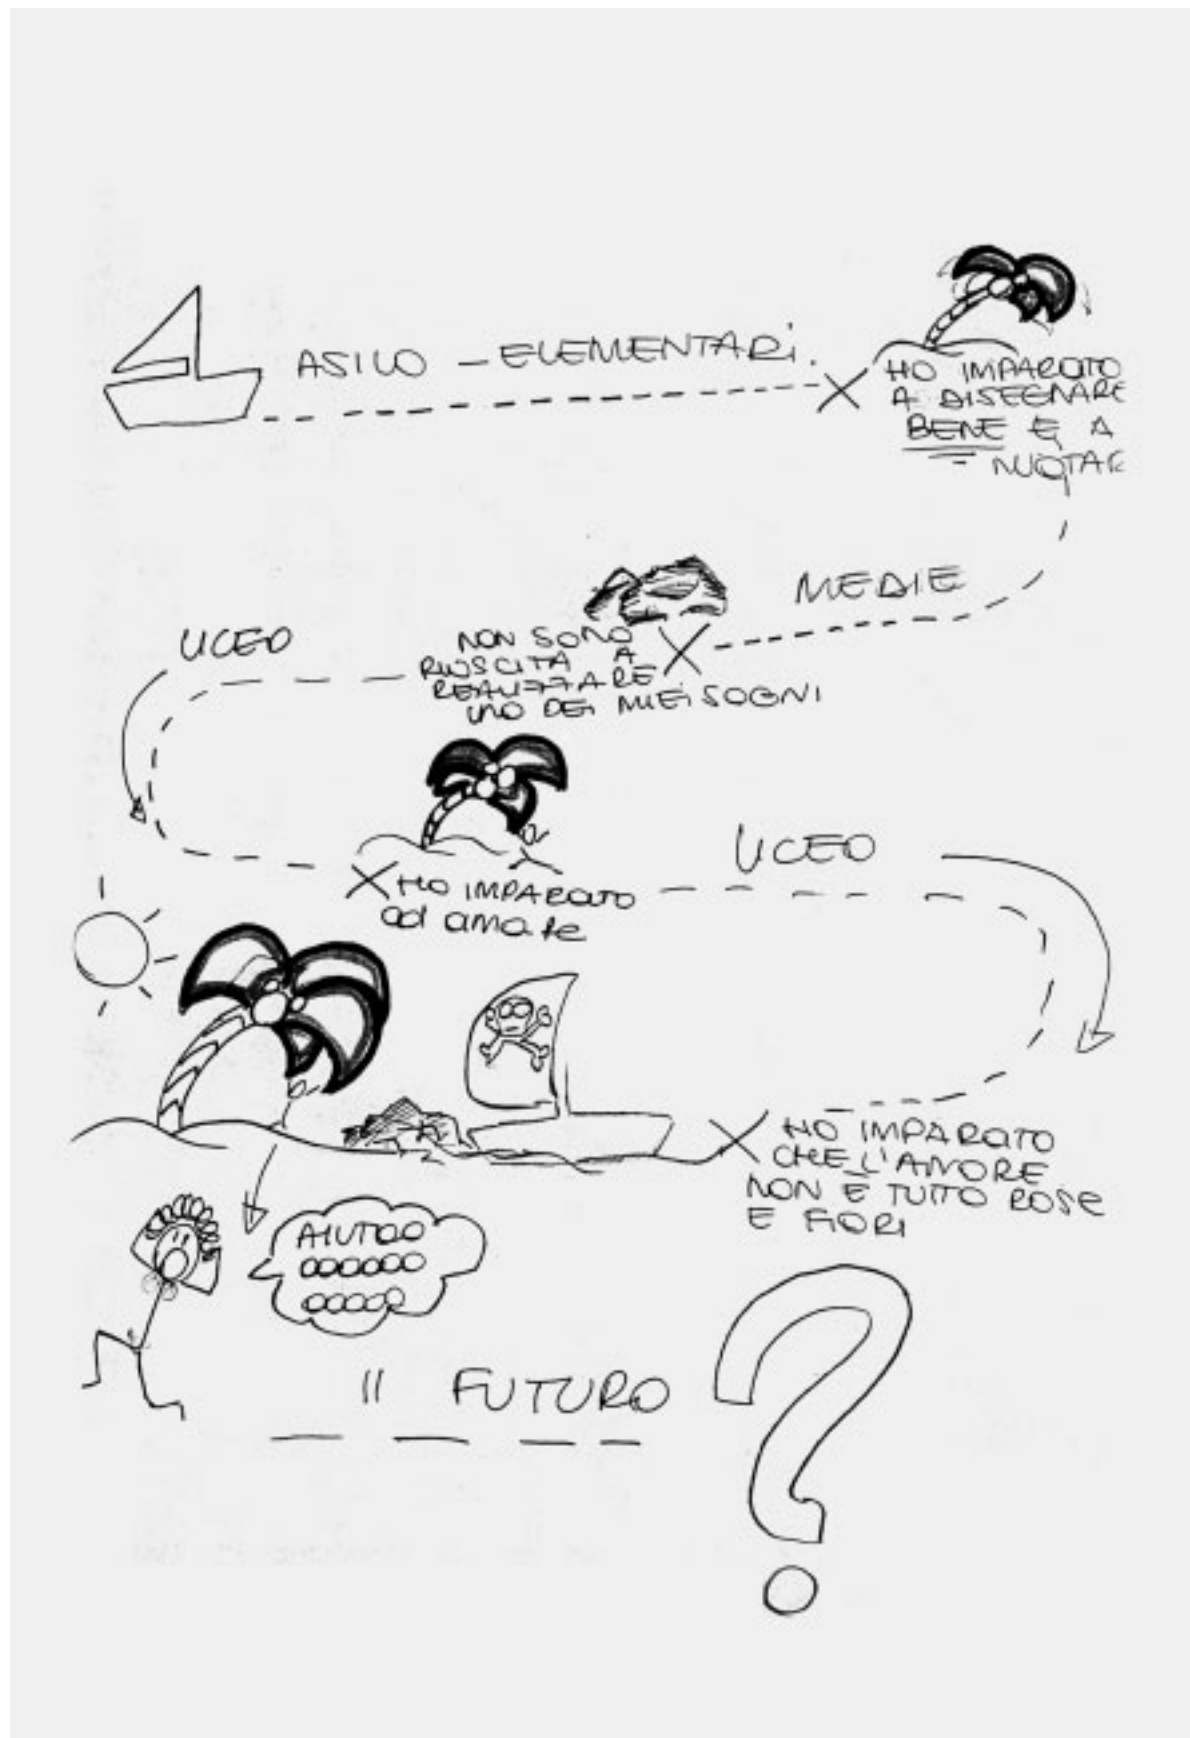 ASILO - ELEMENTARI.
HO IMPARATO
A DISEGNARE
BENE E A
NUOTAR
MEDIE
NON SONO
RIUSCITA A
REALIZZARE
UNO DEI MIEI SOGNI
LICEO
HO IMPARATO
ad amare
LICEO
HO IMPARATO
CHE L'AMORE
NON È TUTTO ROSE
E FIORI
AIUTOO
OOOOOO
OOOOO
Il FUTURO
?